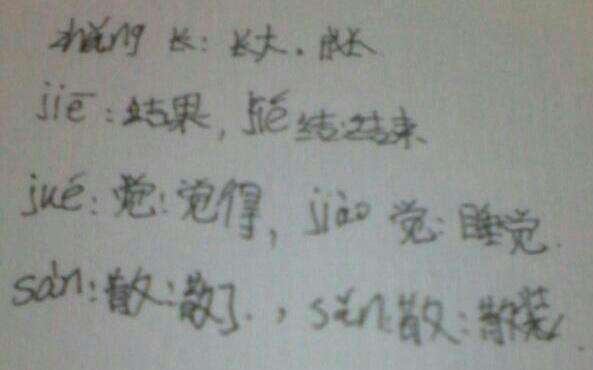 zhǎng 长：长大．成长
jiē：结果，jié 结：结束
jué：觉：觉得，jiào 觉：睡觉．
sàn：散：散了．，sǎn：散：散装．